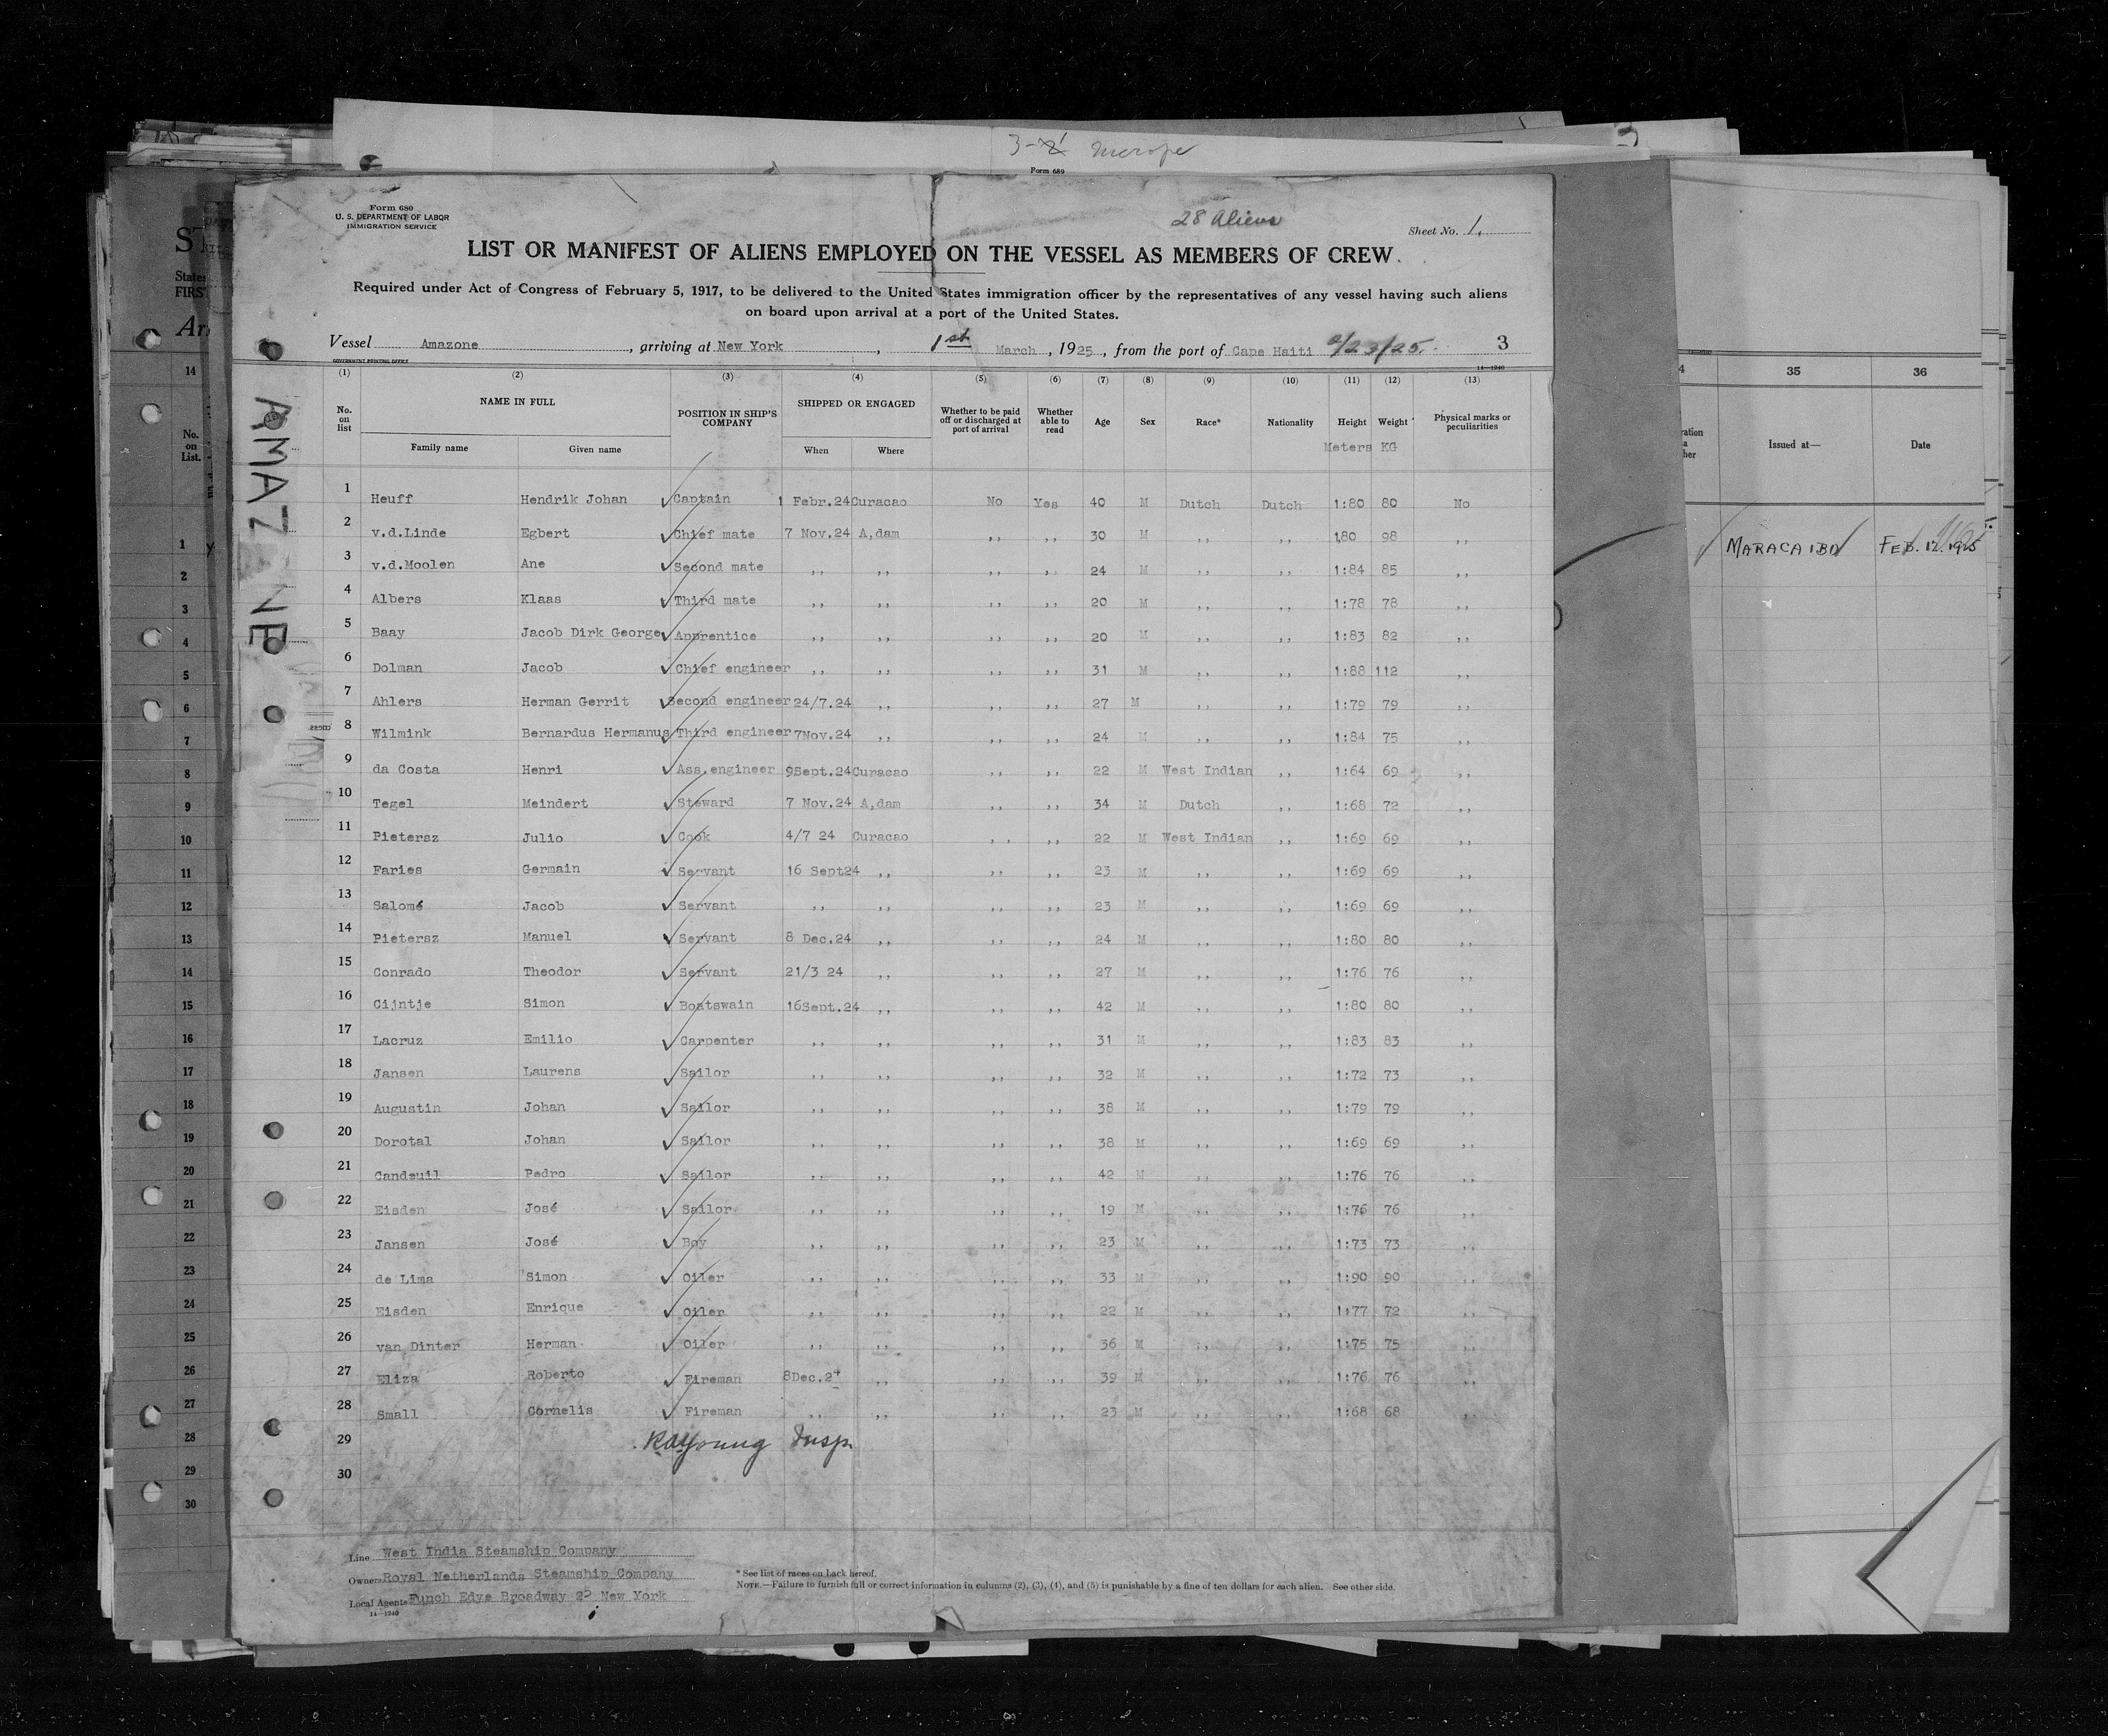 3-2 Merope
Form 689
Form 680
U. S. DEPARTMENT OF LABOR
IMMIGRATION SERVICE
28 Aliens
Sheet No. 1.
LIST OR MANIFEST OF ALIENS EMPLOYED ON THE VESSEL AS MEMBERS OF CREW
Required under Act of Congress of February 5, 1917, to be delivered to the United States immigration officer by the representatives of any vessel having such aliens
on board upon arrival at a port of the United States.
Vessel Amazone, arriving at New York, 1st March, 1925, from the port of Cape Haiti 2/23/25. 3
GOVERNMENT PRINTING OFFICE
14—1240
AMAZONE
(1) (2) (3) (4) (5) (6) (7) (8) (9) (10) (11) (12) (13)
No. on list NAME IN FULL Family name Given name POSITION IN SHIP'S COMPANY SHIPPED OR ENGAGED When Where Whether to be paid off or discharged at port of arrival Whether able to read Age Sex Race* Nationality Height Weight Physical marks or peculiarities
Meters KG
1 Heuff Hendrik Johan Captain 1 Febr.24 Curacao No Yes 40 M Dutch Dutch 1:80 80 No
2 v.d.Linde Egbert Chief mate 7 Nov.24 A,dam ,, ,, 30 M ,, ,, 1,80 98 ,,
3 v.d.Moolen Ane Second mate ,, ,, ,, ,, 24 M ,, ,, 1:84 85 ,,
4 Albers Klaas Third mate ,, ,, ,, ,, 20 M ,, ,, 1:78 78 ,,
5 Baay Jacob Dirk George Apprentice ,, ,, ,, ,, 20 M ,, ,, 1:83 82 ,,
6 Dolman Jacob Chief engineer ,, ,, ,, ,, 31 M ,, ,, 1:88 112 ,,
7 Ahlers Herman Gerrit Second engineer 24/7.24 ,, ,, ,, 27 M ,, ,, 1:79 79 ,,
8 Wilmink Bernardus Hermanus Third engineer 7Nov.24 ,, ,, ,, 24 M ,, ,, 1:84 75 ,,
9 da Costa Henri Ass.engineer 9Sept.24 Curacao ,, ,, 22 M West Indian ,, 1:64 69 ,,
10 Tegel Meindert Steward 7 Nov.24 A,dam ,, ,, 34 M Dutch ,, 1:68 72 ,,
11 Pietersz Julio Cook 4/7 24 Curacao ,, ,, 22 M West Indian ,, 1:69 69 ,,
12 Faries Germain Servant 16 Sept24 ,, ,, ,, 23 M ,, ,, 1:69 69 ,,
13 Salomé Jacob Servant ,, ,, ,, ,, 23 M ,, ,, 1:69 69 ,,
14 Pietersz Manuel Servant 8 Dec.24 ,, ,, ,, 24 M ,, ,, 1:80 80 ,,
15 Conrado Theodor Servant 21/3 24 ,, ,, ,, 27 M ,, ,, 1:76 76 ,,
16 Cijntje Simon Boatswain 16Sept.24 ,, ,, ,, 42 M ,, ,, 1:80 80 ,,
17 Lacruz Emilio Carpenter ,, ,, ,, ,, 31 M ,, ,, 1:83 83 ,,
18 Jansen Laurens Sailor ,, ,, ,, ,, 32 M ,, ,, 1:72 73 ,,
19 Augustin Johan Sailor ,, ,, ,, ,, 38 M ,, ,, 1:79 79 ,,
20 Dorotal Johan Sailor ,, ,, ,, ,, 38 M ,, ,, 1:69 69 ,,
21 Candeuil Pedro Sailor ,, ,, ,, ,, 42 M ,, ,, 1:76 76 ,,
22 Eisden José Sailor ,, ,, ,, ,, 19 M ,, ,, 1:76 76 ,,
23 Jansen José Boy ,, ,, ,, ,, 23 M ,, ,, 1:73 73 ,,
24 de Lima Simon Oiler ,, ,, ,, ,, 33 M ,, ,, 1:90 90 ,,
25 Eisden Enrique Oiler ,, ,, ,, ,, 22 M ,, ,, 1:77 72 ,,
26 van Dinter Herman Oiler ,, ,, ,, ,, 36 M ,, ,, 1:75 75 ,,
27 Eliza Roberto Fireman 8Dec.24 ,, ,, ,, 39 M ,, ,, 1:76 76 ,,
28 Small Cornelis Fireman ,, ,, ,, ,, 23 M ,, ,, 1:68 68 ,,
29 RAYoung Insp.
30
Line West India Steamship Company
Owners Royal Netherlands Steamship Company
Local Agents Funch Edye Broadway 25 New York
14—1240
* See list of races on back hereof.
NOTE.—Failure to furnish full or correct information in columns (2), (3), (4), and (5) is punishable by a fine of ten dollars for each alien. See other side.
State
FIRS
Ar
14
No. on List.
1
2
3
4
5
6
7
8
9
10
11
12
13
14
15
16
17
18
19
20
21
22
23
24
25
26
27
28
29
30
4 35 36
Issued at— Date
MARACAIBO FEB. 12. 1925